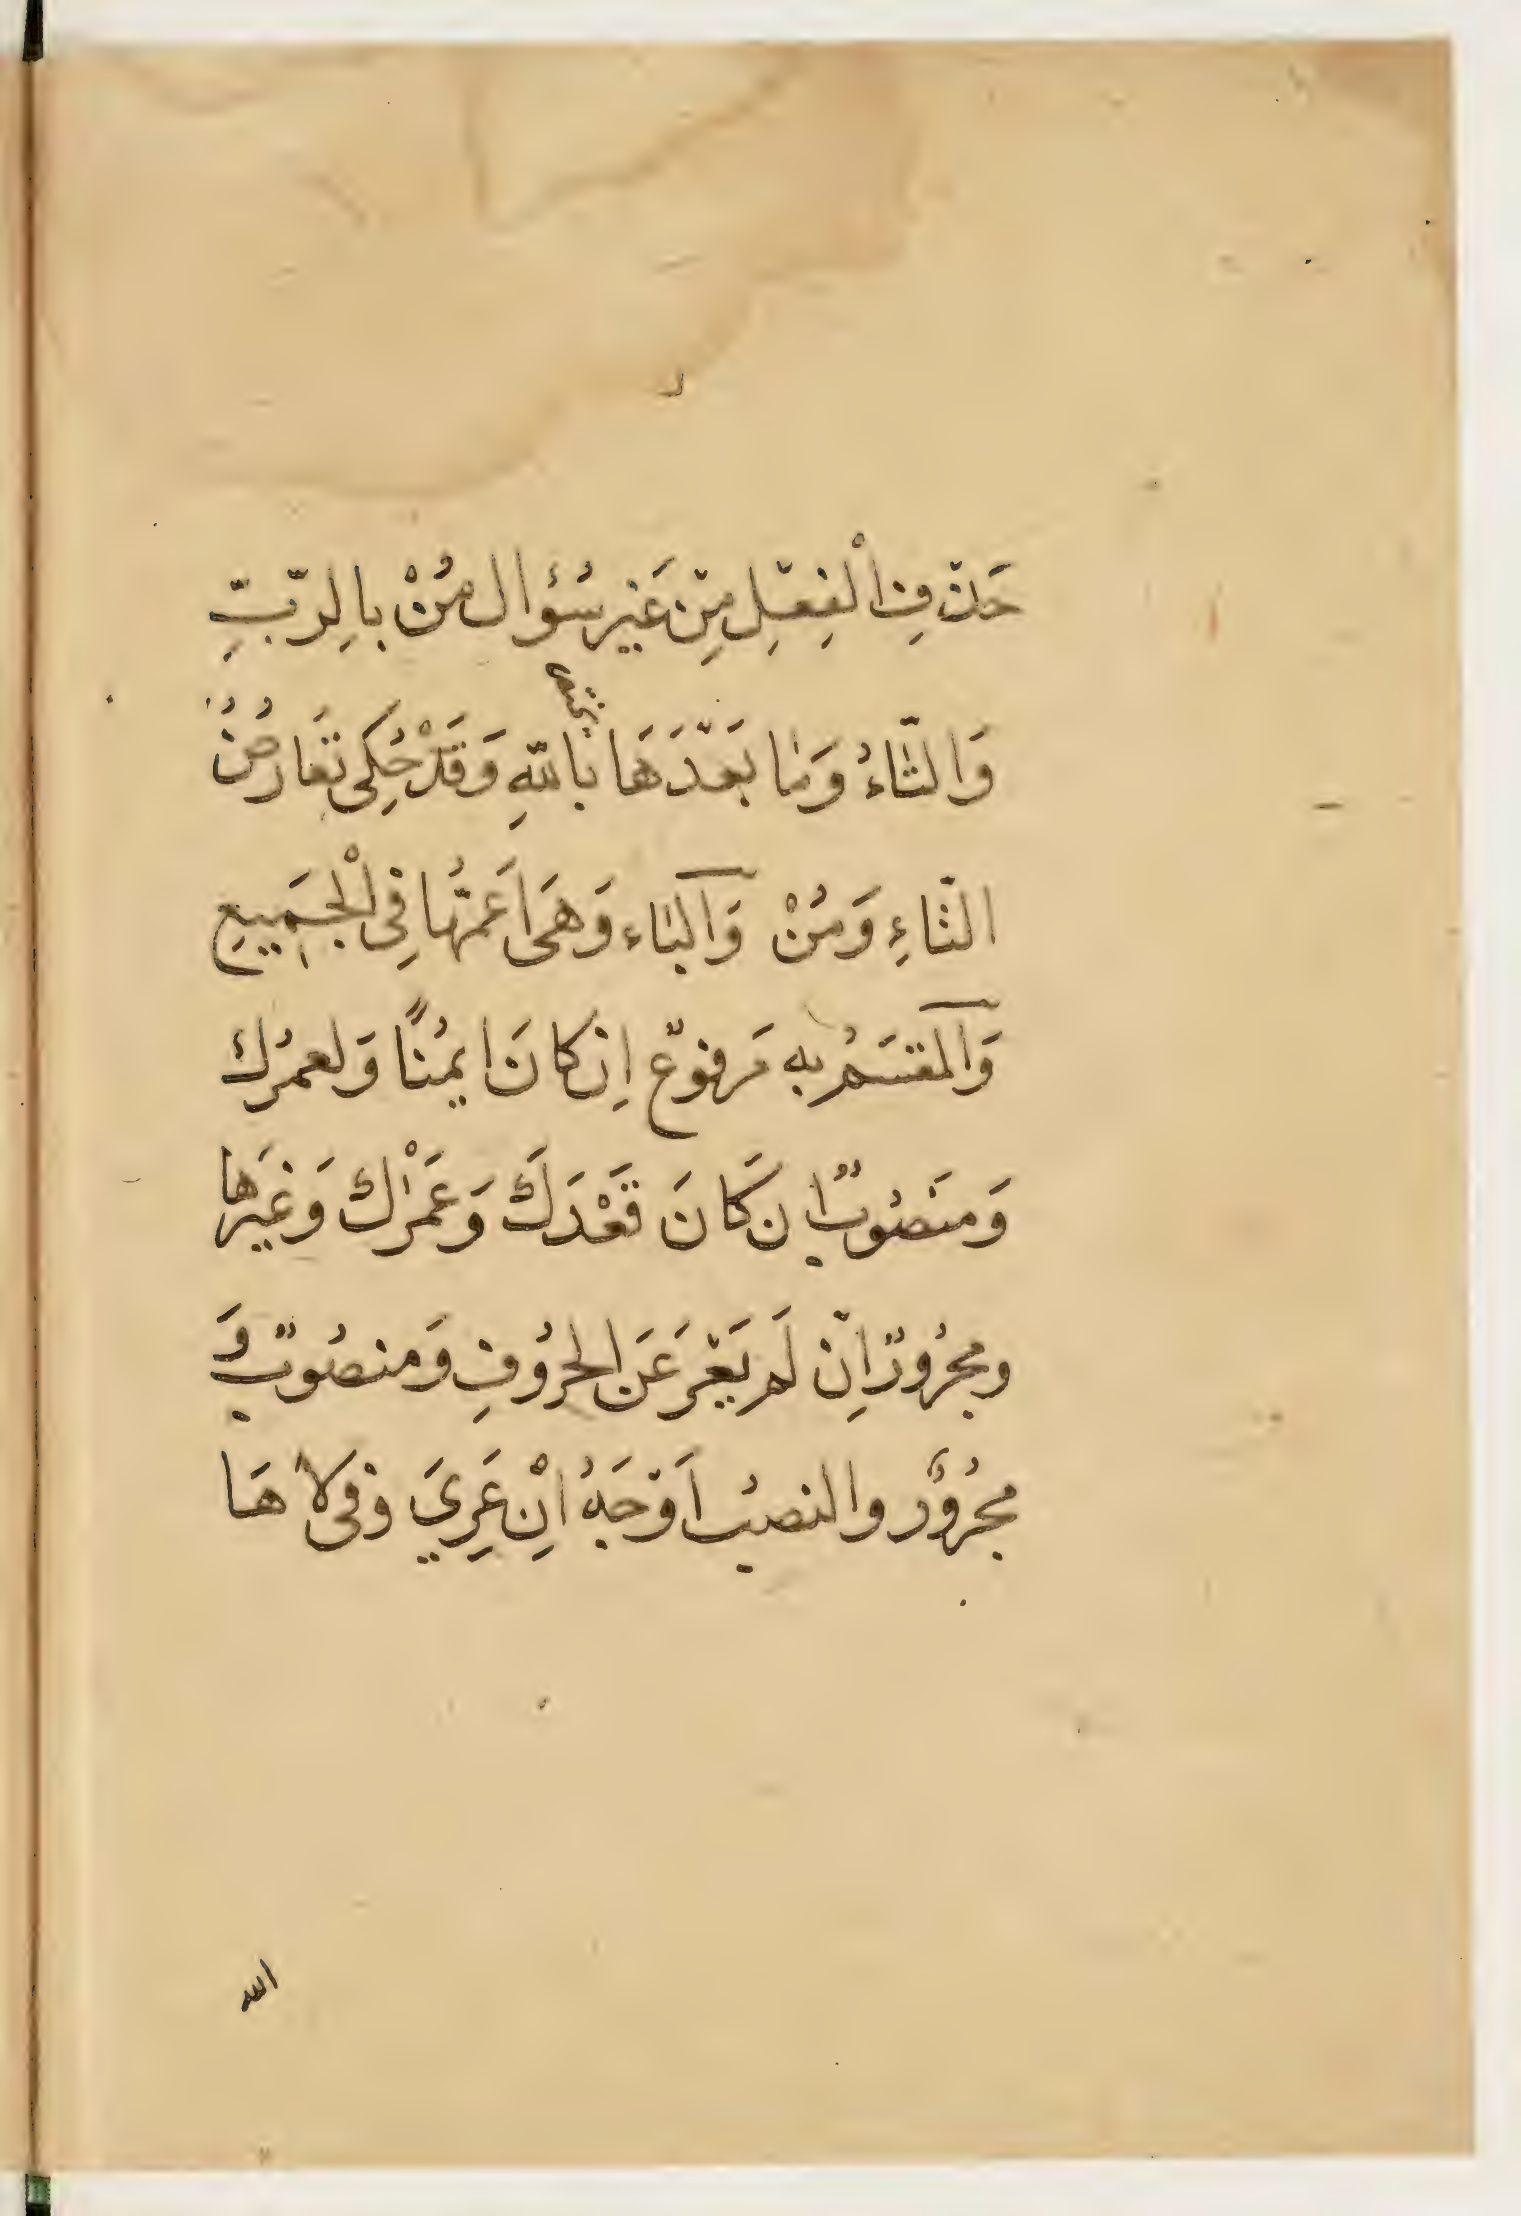 حَذۡفِ الْفِعۡلِ مِنۡ غَيۡرِ سُؤَال مُنْ بِالرَّبِّ
تختص
وَالتَّاءُ وَمَا بَعۡدَهَا بِاللّٰهِ وَقَدْ حُكِى تَعَارُضُ
الثَّاءِ وَمُنْ وَالۤبَاء وَهَى اَعَمُّهَا فِى الْجَمِيعِ
وَالۤمقسَمُ به مَرفوعٌ اِن كانَ ايمُنًا وَلعمرُك
وَمَنصُوبٌ ان كَانَ قَعْدَكَ وَعَمْرَك وَغيَرها
ومجرُورٌ اِنۡ لَم يَعۡرَ عَنَ الحرُوفِ وَمنصُوبٌ وَ
مجرُورٌ والنصبُ اَوۡجَهُ اِنْ عَرِيَ وفى لاهَا
الله